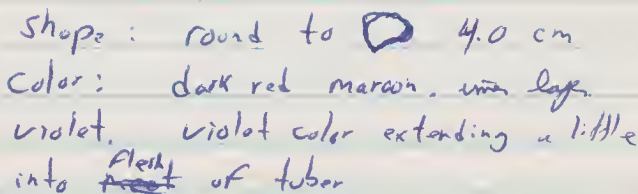 Shape: round to 4.0 cm
Color: dark red maroon. layer
violet. violet color extending a little
into flesh of tuber